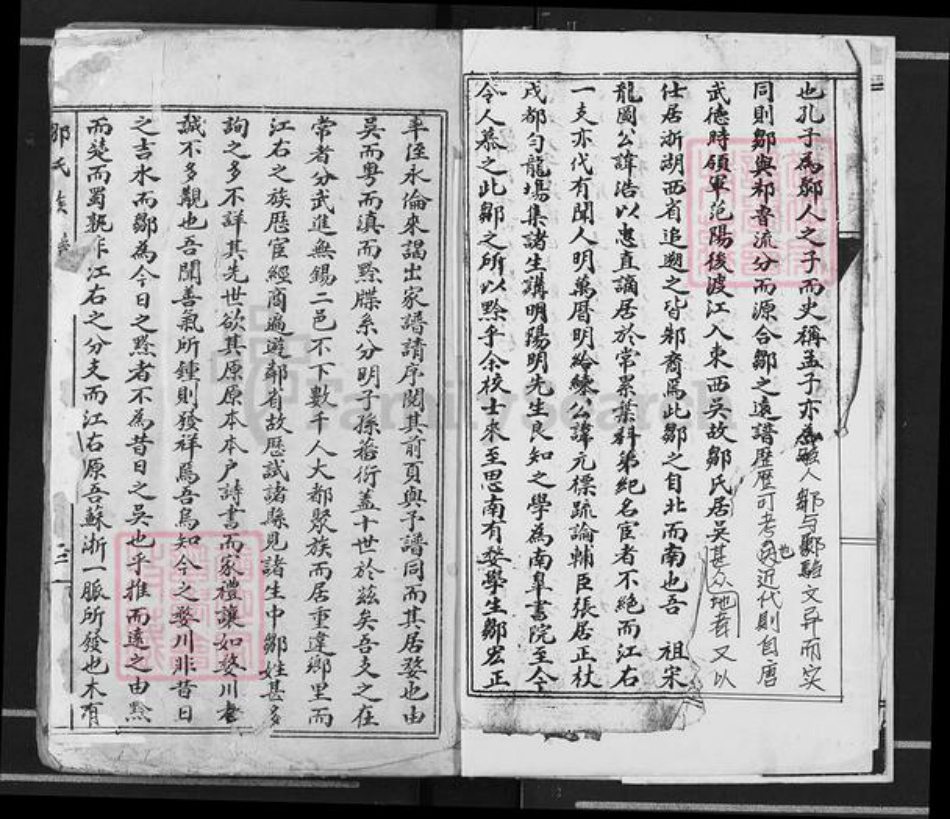 也孔子為鄹人之子而史稱孟子亦為鄒人鄒与鄹驗文异而实
同則鄒與邾魯流分而源合鄒之遠譜歷歷可考也近代則自唐
武德時領軍范陽後渡江入東西吳故鄒氏居吳甚众地者又以
仕居浙湖西省追遡之皆邾裔焉此鄒之自北而南也吾 祖宋
龍圖公諱浩以忠直謫居於常累葉科第紀名宦者不絶而江右
一支亦代有聞人明萬曆明給練公諱元標疏論輔臣張居正杖
戍都勻龍塲集諸生講明陽明先生良知之學為南皐書院至今
令人慕之此鄒之所以黔乎余校士來至思南有婺學生鄒宏正
率侄永倫來謁出家譜請序閱其前頁與予譜同而其居婺也由
吳而粵而滇而黔牒系分明子孫蕃衍盖十世於兹矣吾支之在
常者分武進無錫二邑不下數千人大都聚族而居重違鄉里而
江右之族歷宦經商遍遊鄰省故歷試諸縣見諸生中鄒姓甚多
詢之多不詳其先世欲其原原本本户詩書而家禮讓如婺川者
誠不多觀也吾聞善氣所鍾則發祥焉吾烏知今之婺川非昔日
之吉水而鄒為今日之黔者不為昔日之吳也乎推而遠之由黔
而楚而蜀孰非江右之分支而江右原吾蘇浙一脈所發也木有
鄒氏族
二
FamilySearch